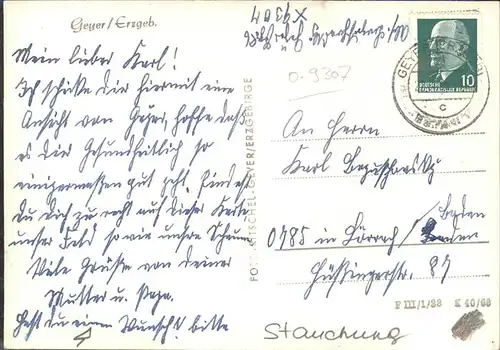 Geyer/Erzgeb.
Mein lieber Karl!
Ich schicke Dir hiermit eine
Ansicht von Geyer, hoffe daß
es Dir Gesundheitlich so
einigermaßen gut geht. Findest
Du Dich zu recht auf dieser Karte,
unser Feld sowie unsre Scheune
Viele Grüße von deiner
Mutter u. Papa.
Hast du einen Wunsch? bitte
FOTO ERZGEBIRGE
GEYER/ERZGEBIRGE
X 9304
0-9307
GEYER
c
DEUTSCHE
DEMOKRATISCHE REPUBLIK
10
An Herrn
Karl
Baden
0785 in Lörrach/Baden
Hüsingerstr. 87
F III/1/88 K 40/68
Stauchung